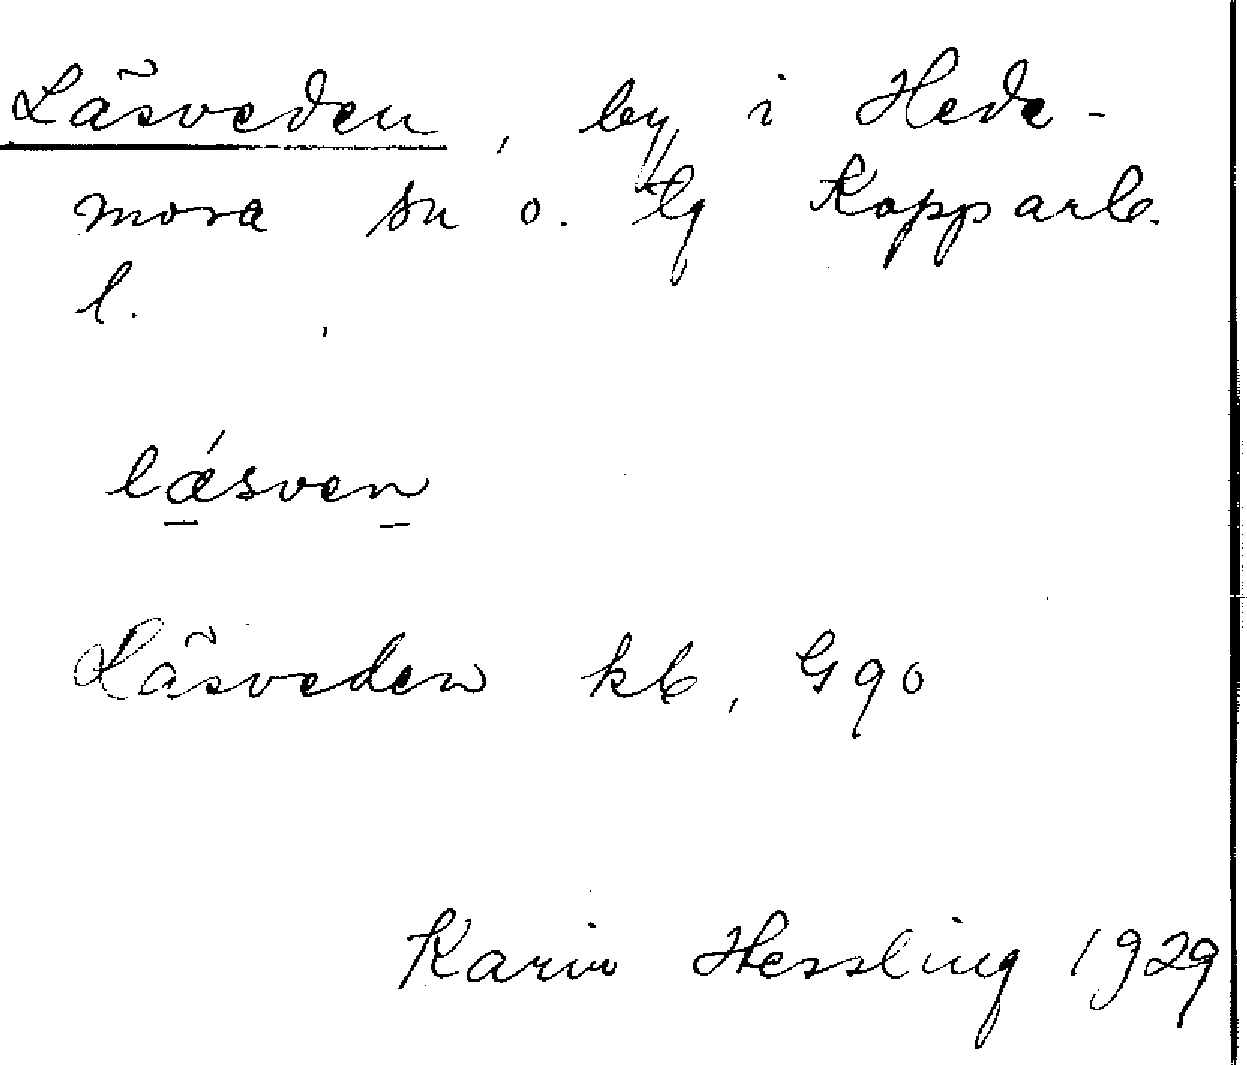 Läsveden, by i Hede-
mora sn o. tg Kopparb.
l.
lǽsven
Läsveden kb, G90
Karin Hessling 1929